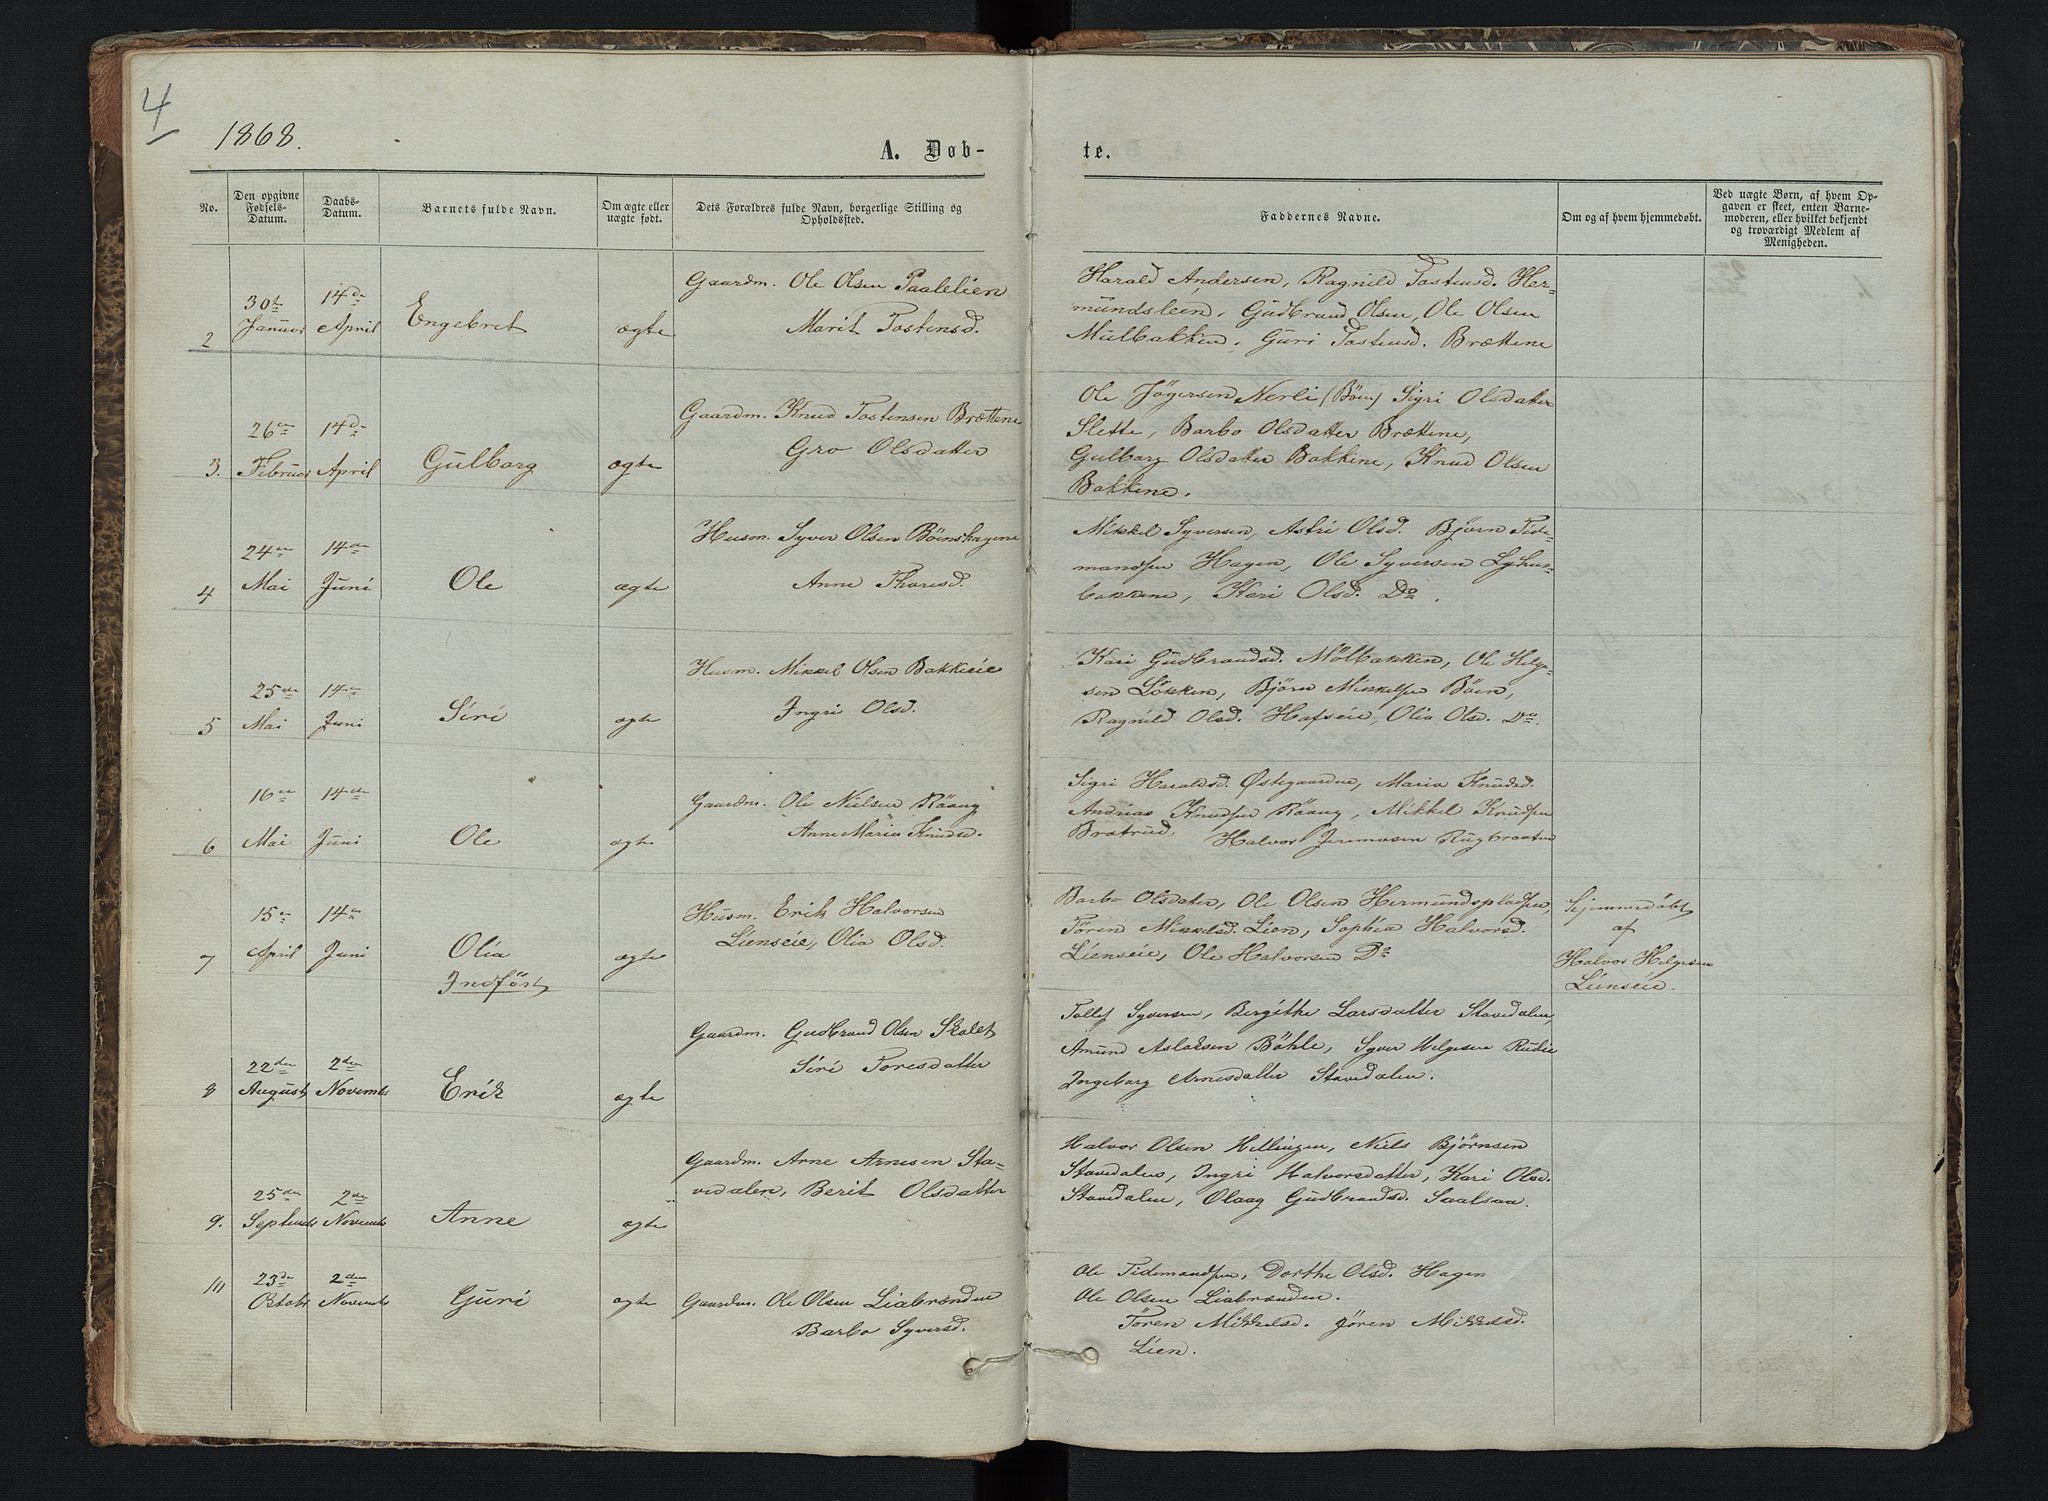 4
1868.
A. Døb-
te.
No.
Den opgivne Fødsels-Datum.
Daabs-Datum.
Barnets fulde Navn.
Om ægte eller uægte født.
Dets Forældres fulde Navn, borgerlige Stilling og Opholdssted.
Faddernes Navne.
Om og af hvem hjemmedøbt.
Ved uægte Børn, af hvem Opgaven er skeet, enten Barnemoderen, eller hvilket bekjendt og troværdigt Medlem af Menigheden.
2
30te Januar
14de April
Engebret
ægte
Gaardm. Ole Olsen Paalelien
Marit Tostensd.
Harald Andersen, Ragnild Tostensd. Her-
mundsleen, Gudbrand Olsen, Ole Olsen
Mulbakken, Guri Tostensd. Brættene
3.
26en Februar
14de April
Gulborg
ægte
Gaardm. Knud Tostensen Brættene
Gro Olsdatter
Ole Jögersen Nerli (Böen) Sigri Olsdatter
Slette, Barbo Olsdatter Brættene,
Gulborg Olsdatter Bakkene, Knud Olsen
Bakkene.
4
24en Mai
14de Juni
Ole
ægte
Husm. Syver Olsen Böenshagene
Anne Thoresd.
Mikkel Syversen, Astri Olsd. Bjørn Tide-
mandsen Hagen, Ole Syversen Lyhus-
bakkene, Kari Olsd. Do.
5
25de Mai
14en Juni
Siri
ægte
Husm. Mikkel Olsen Bakkeeie
Ingri Olsd.
Kari Gudbrandsd. Mölbakken, Ole Helge-
sen Lökken, Bjørn Mikkelsen Böen,
Ragnild Olsd. Hafseie, Olia Olsd. Do.
6
16en Mai
14de Juni
Ole
ægte
Gaardm. Ole Nielsen Råang
Anne Maria Knudsd.
Sigri Haraldsd. Østegaarden, Maria Knudsd.
Andrias Knudsen Råang, Mikkel Knudsen
Bratrud, Halvor Jeremiasen Rugbraaten
7
15en April
14en Juni
Olia
Indført
ægte
Husm. Erik Halvorsen
Lienseie, Olia Olsd.
Barbo Olsdatter, Ole Olsen Hermundspladsen,
Tören Mikkelsd. Lien, Sophia Halvorsd.
Lienseie, Ole Halvorsen Do
Hjemmedöbt
af
Halvor Helgesen
Lienseie.
8
22den August
2den Novemb.
Erik
ægte
Gaardm. Gudbrand Olsen Skalet
Siri Toresdatter
Tollef Syversen, Bergithe Larsdatter Stavedalen,
Amund Aslaksen Böhle, Syver Helgesen Rudie
Ingeborg Arnesdatter Stavedalen.
9.
25den Septemb.
2den Novemb.
Anne
ægte
Gaardm. Arne Arnesen Sta-
vedalen, Berit Olsdatter
Halvor Olsen Hellingen, Niels Bjørnsen
Stavedalen, Ingri Halvorsdatter, Kari Olsd.
Stavedalen, Olaug Gudbrandsd. Saalsaa.
10
23de Octob.
2den Novemb.
Guri
ægte
Gaardm. Ole Olsen Liabrænden
Barbo Syversd.
Ole Tidemandsen, Dorthe Olsd. Hagen
Ole Olsen Liabrænden.
Tören Mikkelsd. Jören Mikkelsd.
Lien.